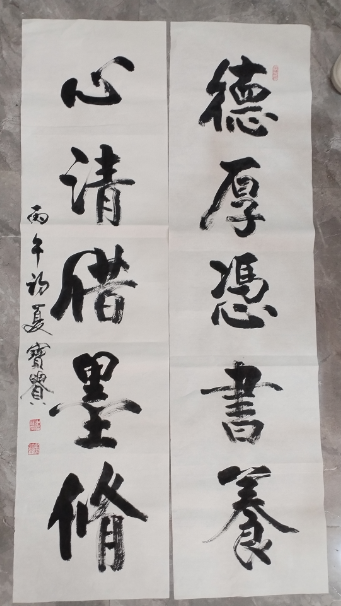 德厚憑書養
心清借墨脩
丙午初夏寶贊